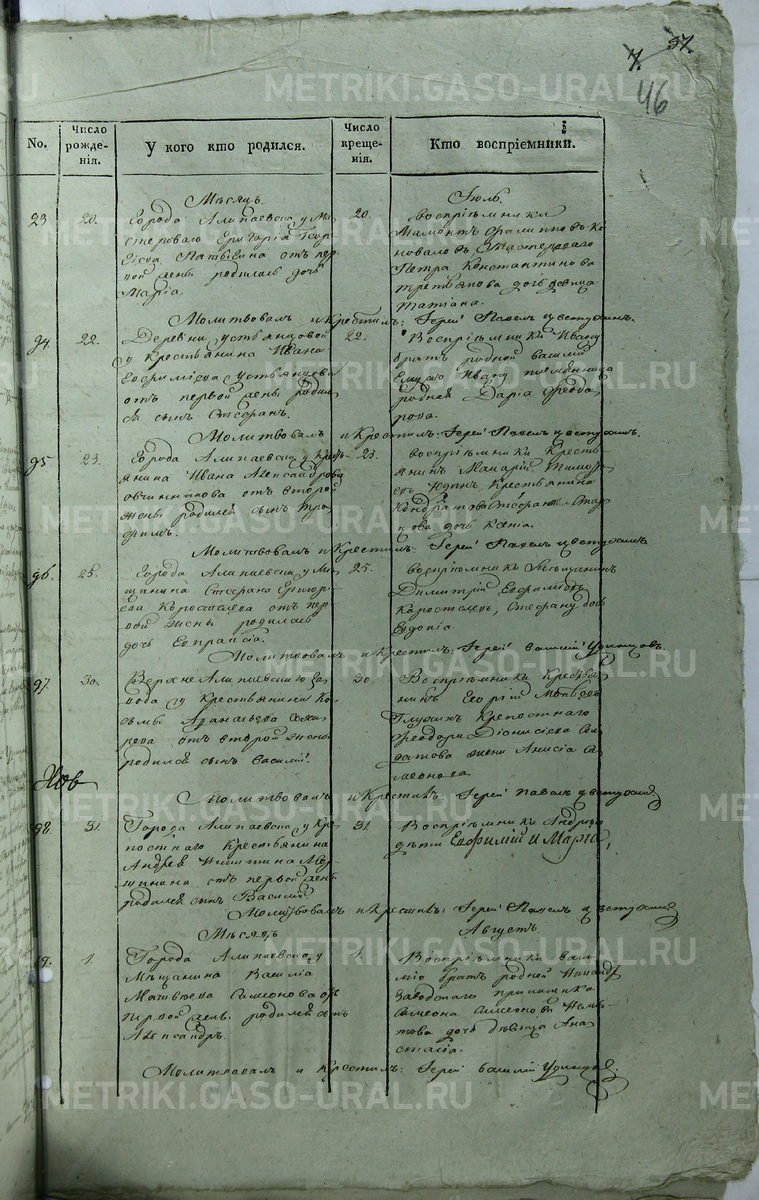 METRIKI.GASO-URAL.RU
7. 37.
46
No.
Число рожде-нія.
У кого кто родился.
Число креще-нія.
Кто воспріемники.
Мѣсяцъ
Іюль.
93
20.
Города Алапаевска у Ма-
стероваго Григорія Геор-
гіева отъ пер-
вой жены родилась дочь
Марія.
20.
воспріѣмники
Мамонтъ Филипповъ Ко-
новаловъ, Мастероваго
Петра Константинова
Третьякова дочь дѣвица
Татіана.
Молитвовалъ и Крестилъ: Іерей Павелъ Цвѣтухинъ.
94.
22.
Деревни Устьянцовой
у Крестьянина Ивана
Евфиміева Устьянцова
отъ первой жены родил-
ся сынъ Стефанъ.
22.
Воспріѣмники Ивану
братъ родной Василій
ему же Ивану племянница
родная Дарія Феодо-
рова.
Молитвовалъ и Крестилъ: Іерей Павелъ Цвѣтухинъ.
95
23.
Города Алапаевска у Кресть-
янина Ивана Александрова
Овчинникова отъ второй
жены родился сынъ Тро-
фимъ.
23.
воспріѣмники Кресть-
янинъ Макарій
Крестьянина
дочь Ксенія.
Молитвовалъ и Крестилъ: Іерей Павелъ Цвѣтухинъ
96.
25.
Города Алапаевска у Мѣ-
щанина Стефана Григорь-
ева Коростелева отъ пер-
вой жены родилась
дочь Евпраксія.
25.
воспріѣмники Мѣщанинъ
Димитрій Евфиміевъ
Коростелевъ, Стефану дочь
Евдокія.
Молитвовалъ и Крестилъ: Іерей Василій Удинцовъ.
97.
30.
Верхне Алапаевскаго за-
вода у Крестьянина Ко-
сьмы
отъ второй жены
родился сынъ Василій.
30.
Воспріѣмники Крестья-
нинъ Георгій Матвѣевъ
Глухихъ Крепостнаго
Феодора Діонисіева
жена Анисія Си-
меонова.
Молитвовалъ и Крестилъ: Іерей Павелъ Цвѣтухинъ
98.
31.
Города Алапаевска у Кре-
постнаго Крестьянина
Андрея Никитина
отъ первой жены
родился сынъ Василій.
31.
Воспріѣмники Андрея
дѣти Евфимій и Марѳа,
Молитвовалъ и Крестилъ: Іерей Павелъ Цвѣтухинъ
Мѣсяцъ
Августъ.
99.
1.
Города Алапаевска у
Мѣщанина Василія
Матвѣева Симеонова отъ
первой жены родился сынъ
Александръ.
1.
Воспріѣмники Васи-
лію братъ родной Никандръ
Заводскаго прикащика
Симеона Симеонова
дочь дѣвица Ана-
стасія.
Молитвовалъ и Крестилъ: Іерей Василій Удинцовъ.